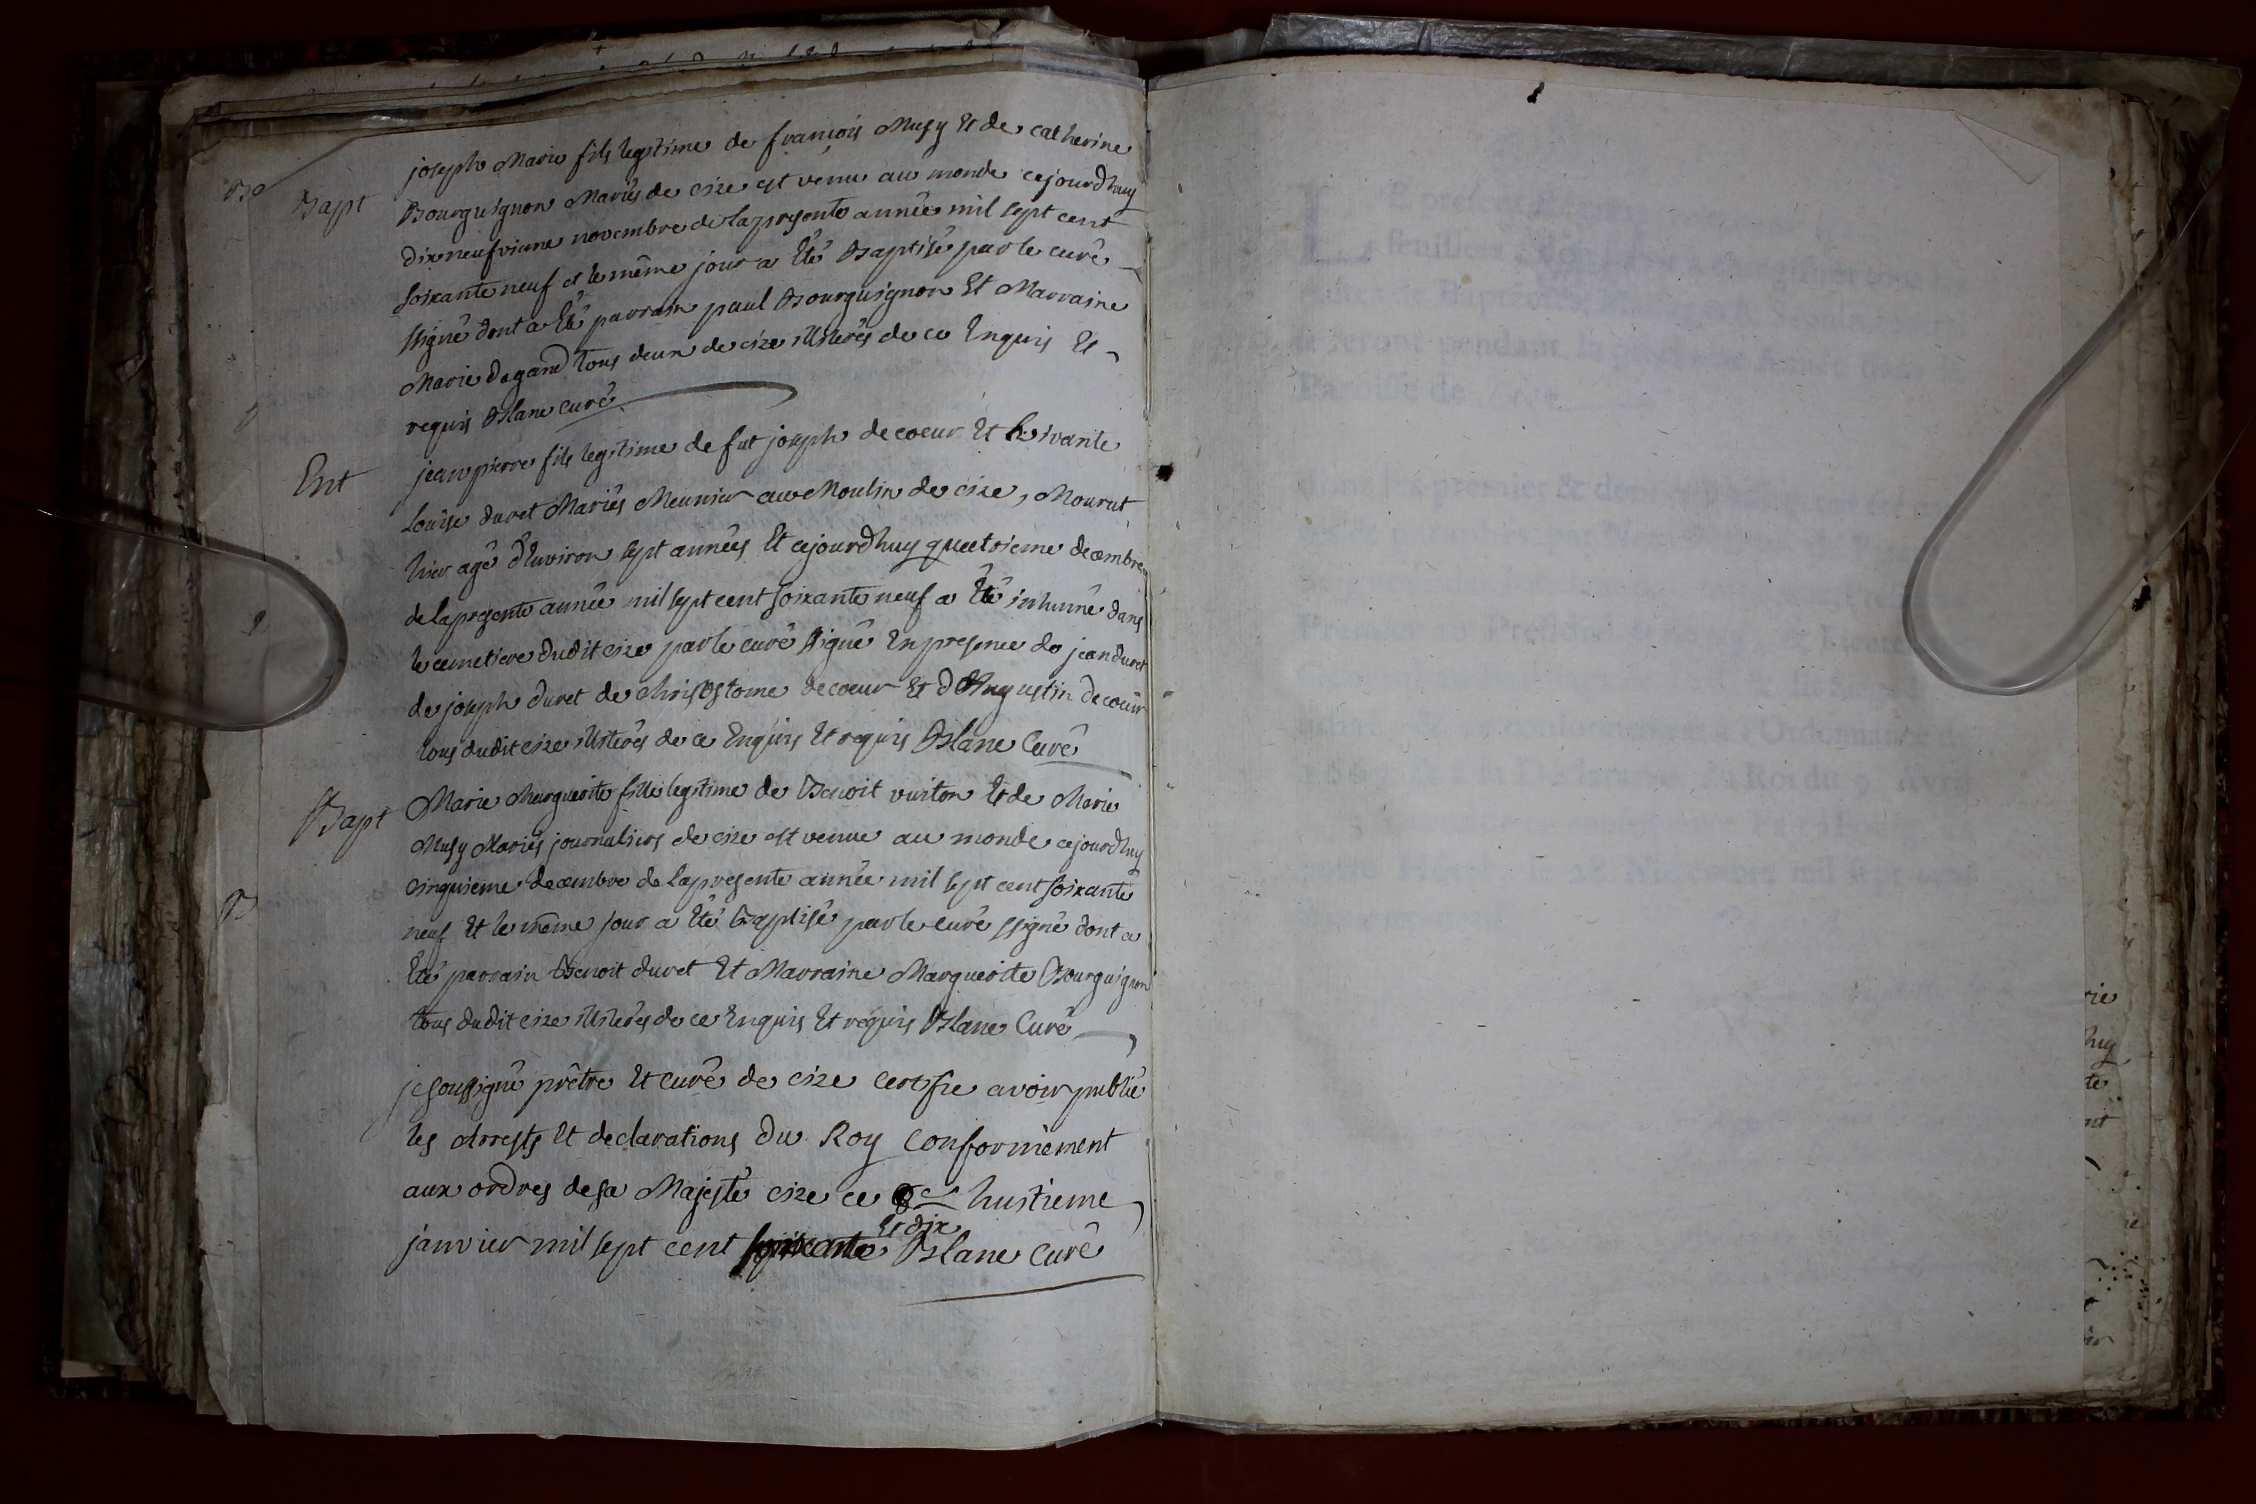 Bapt
joseph Marie fils legitime de françois Musy Et de catherine
Bourguignon Mariés de cize est venu au monde cejourdhuy
dixneufvieme novembre de la presente année mil sept cent
soixante neuf et le même jour a Eté Baptisé par le curé
ssigné dont a Eté parrain paul Bourguignon Et Marraine
Marie dagand tous deux de cize illiterés de ce Enquis Et
requis Blanc curé
Ent
jean pierre fils legitime de fut joseph decoeur Et vivante
Louise duret Mariés Meunier au Moulin de cize, Mourut
hier agé d'Environ sept années Et cejourdhuy quatrieme decembre
de la presente année mil sept cent soixante neuf a Eté inhumé dans
le cemetiere dudit cize par le curé signé En presence de jean duret
de joseph duret de chrisostome decoeur Et d'Augustin decoeur
tous dudit cize illiterés de ce Enquis Et requis Blanc Curé
Bapt
Marie Marguerite fille legitime de Benoit vuiton Et de Marie
Musy Mariés journaliers de cize est venue au monde cejourdhuy
cinquieme decembre de la presente année mil sept cent soixante
neuf Et le même jour a Eté Baptisé par le curé ssigné dont a
Eté parrain Benoit duret Et Marraine Marguerite Bourguignon
tous dudit cize illiterés de ce Enquis Et requis Blanc Curé
je soussigné prêtre Et curé de cize certifie avoir publié
les Arrests Et declarations du Roy conformement
aux ordres de sa Majesté cize ce huitieme
Et dix
janvier mil sept cent soixante Blanc Curé